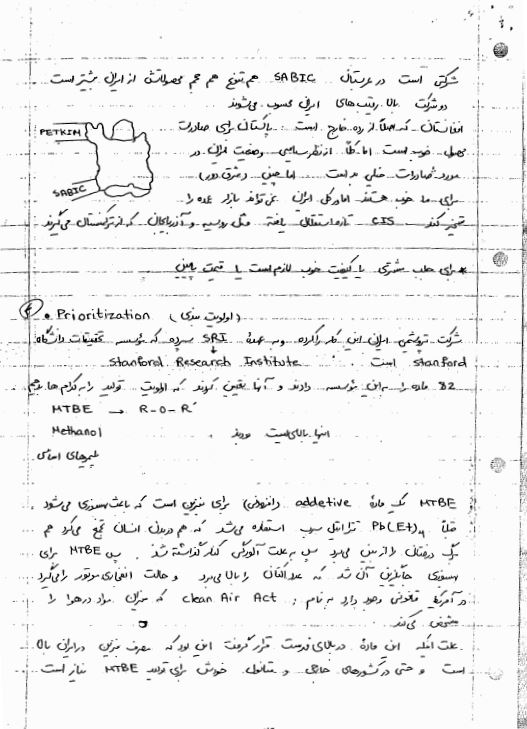 شرکتی است در عربستان SABIC هم تنوع هم حجم محصولاتش از ایران بیشتر است
دو شرکت بالا رقیب های ایران محسوب می شوند
افغانستان که اصلاً از رده خارج است. پاکستان برای صادرات
محصول خوب است اما کلاً از نظر سیاسی وضعیت ایران در
مورد صادرات خیلی بد است اما چین (شرق دور)
برای ما خوب هستند اما در کل ایران نمی تواند بازار عمده را
تسخیر کند. CIS تازه استقلال یافته مثل روسیه و آذربایجان که از ترکمنستان می گیرند
PETKIM
SABIC
* برای جلب مشتری یا کیفیت خوب لازم است یا قیمت پایین
④ • Prioritization (اولویت بندی)
شرکت پتروشیمی ایران این کار را کرده و به عهدۀ SRI سپرده که مؤسسه تحقیقات دانشگاه
Stanford است. Stanford Research Institute
82 ماده را به این مؤسسه دادند و آنها تعیین کردند که اولویت تولید را به کدام ها بدهیم
MTBE → R-O-R'
Methanol
اینها بالای لیست بودند.
پلیمرهای اساسی
MTBE یک مادۀ addetive (افزودنی) برای بنزین است که باعث بهسوزی می شود.
قبلاً Pb(Et)₄ تترا اتیل سرب استفاده می شد که هم در بدن انسان تجمع می کرد هم
برگ درختان را از بین می برد پس به علت آلودگی کنار گذاشته شد. پس MTBE برای
بهسوزی جایگزین آن شد که عدد اکتان را بالا می برد و حالت انفجاری موتور را می گیرد
در آمریکا قانونی وجود دارد به نام: clean Air Act که میزان مواد در هوا را
مشخص می کند.
علت اینکه این ماده در بالای لیست قرار گرفت این بود که مصرف بنزین در ایران بالا
است و حتی در کشورهای خارجی و متانول خودش برای تولید MTBE نیاز است